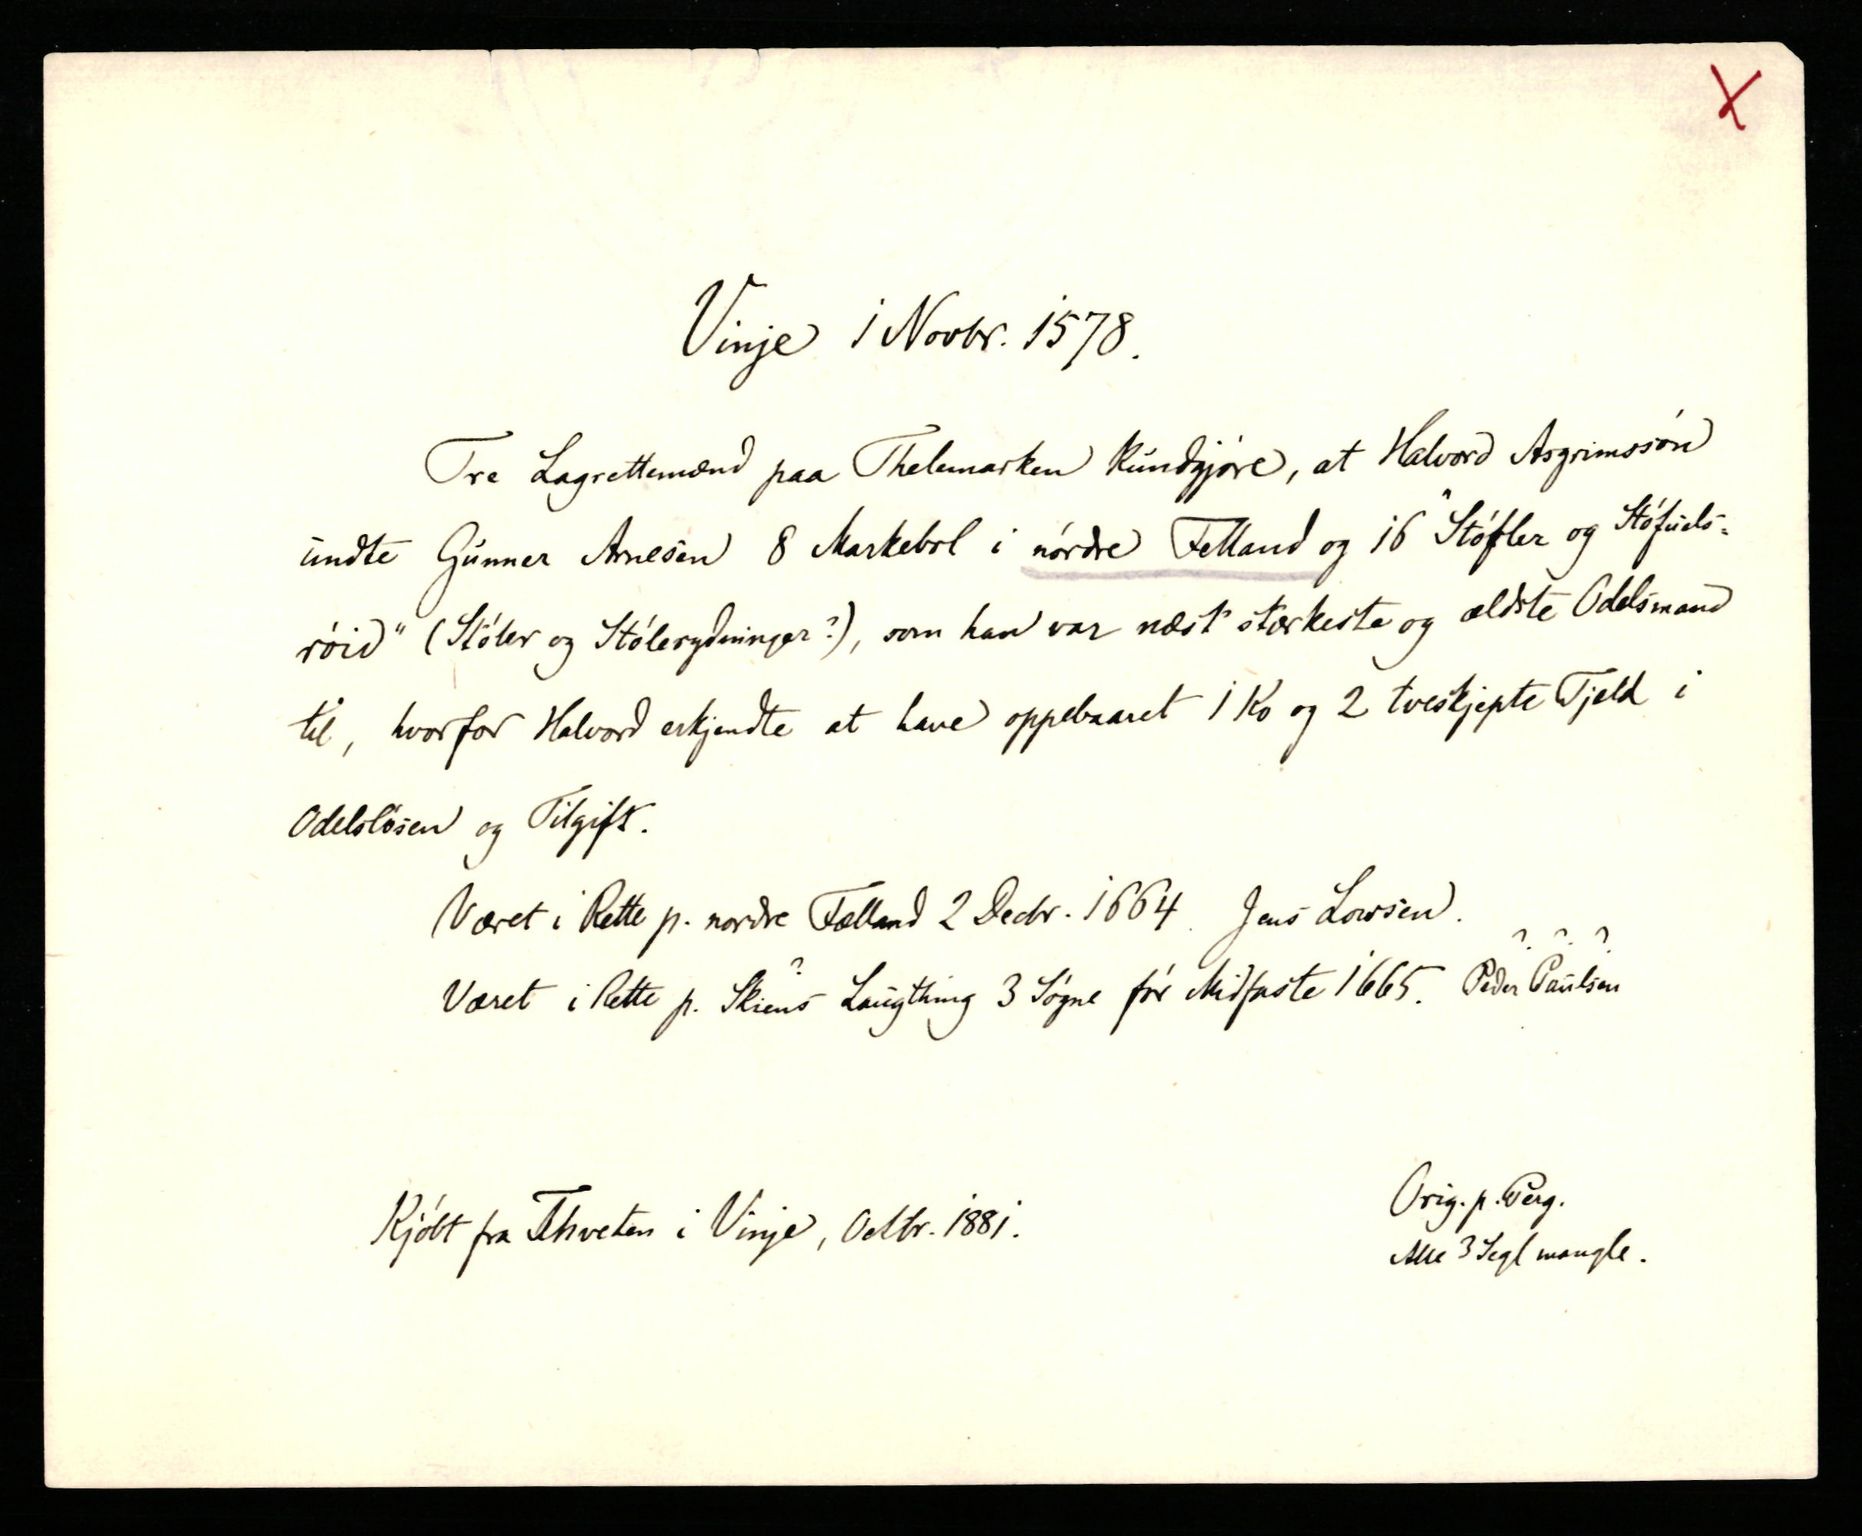 X
Vinje 1 Novbr. 1578.
Tre Lagrettemænd paa Thelemarken kundgjøre, at Halvord Asgrimssøn
undte Gunner Arnesen 8 Markebol i nørdre Felland og 16 "Støfler og Støfuels-
røid" (Støler og Stølerydninger?), som han var næst stærkeste og ældste Odelsmand
til, hvorfor Halvord erkjendte at have oppebaaret 1 Ko og 2 tveskjepte Tjeld i
Odelsløsen og Tilgift.
Været i Rette p. nordre Fælland 2 Decbr. 1664. Jens Lowsen.
Været i Rette p. Skiens? Laugthing 3 Søgne før Midfaste 1665. Peder Paulsen ? ? ?
Kjøbt fra Thveten i Vinje, Octbr. 1881.
Orig. p. Perg.
Alle 3 Segl mangle.